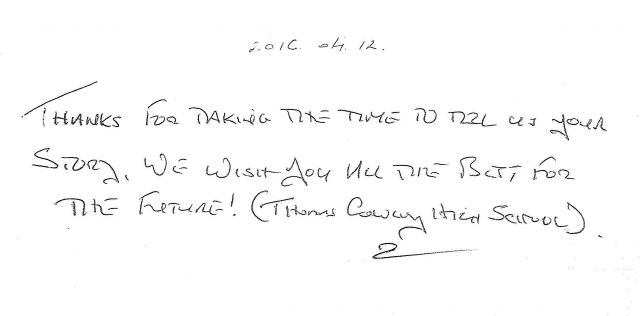 2016. 04. 12.
THANKS FOR TAKING THE TIME TO TELL US YOUR
STORY. WE WISH YOU ALL THE BEST FOR
THE FUTURE! (THOMAS HIGH SCHOOL).